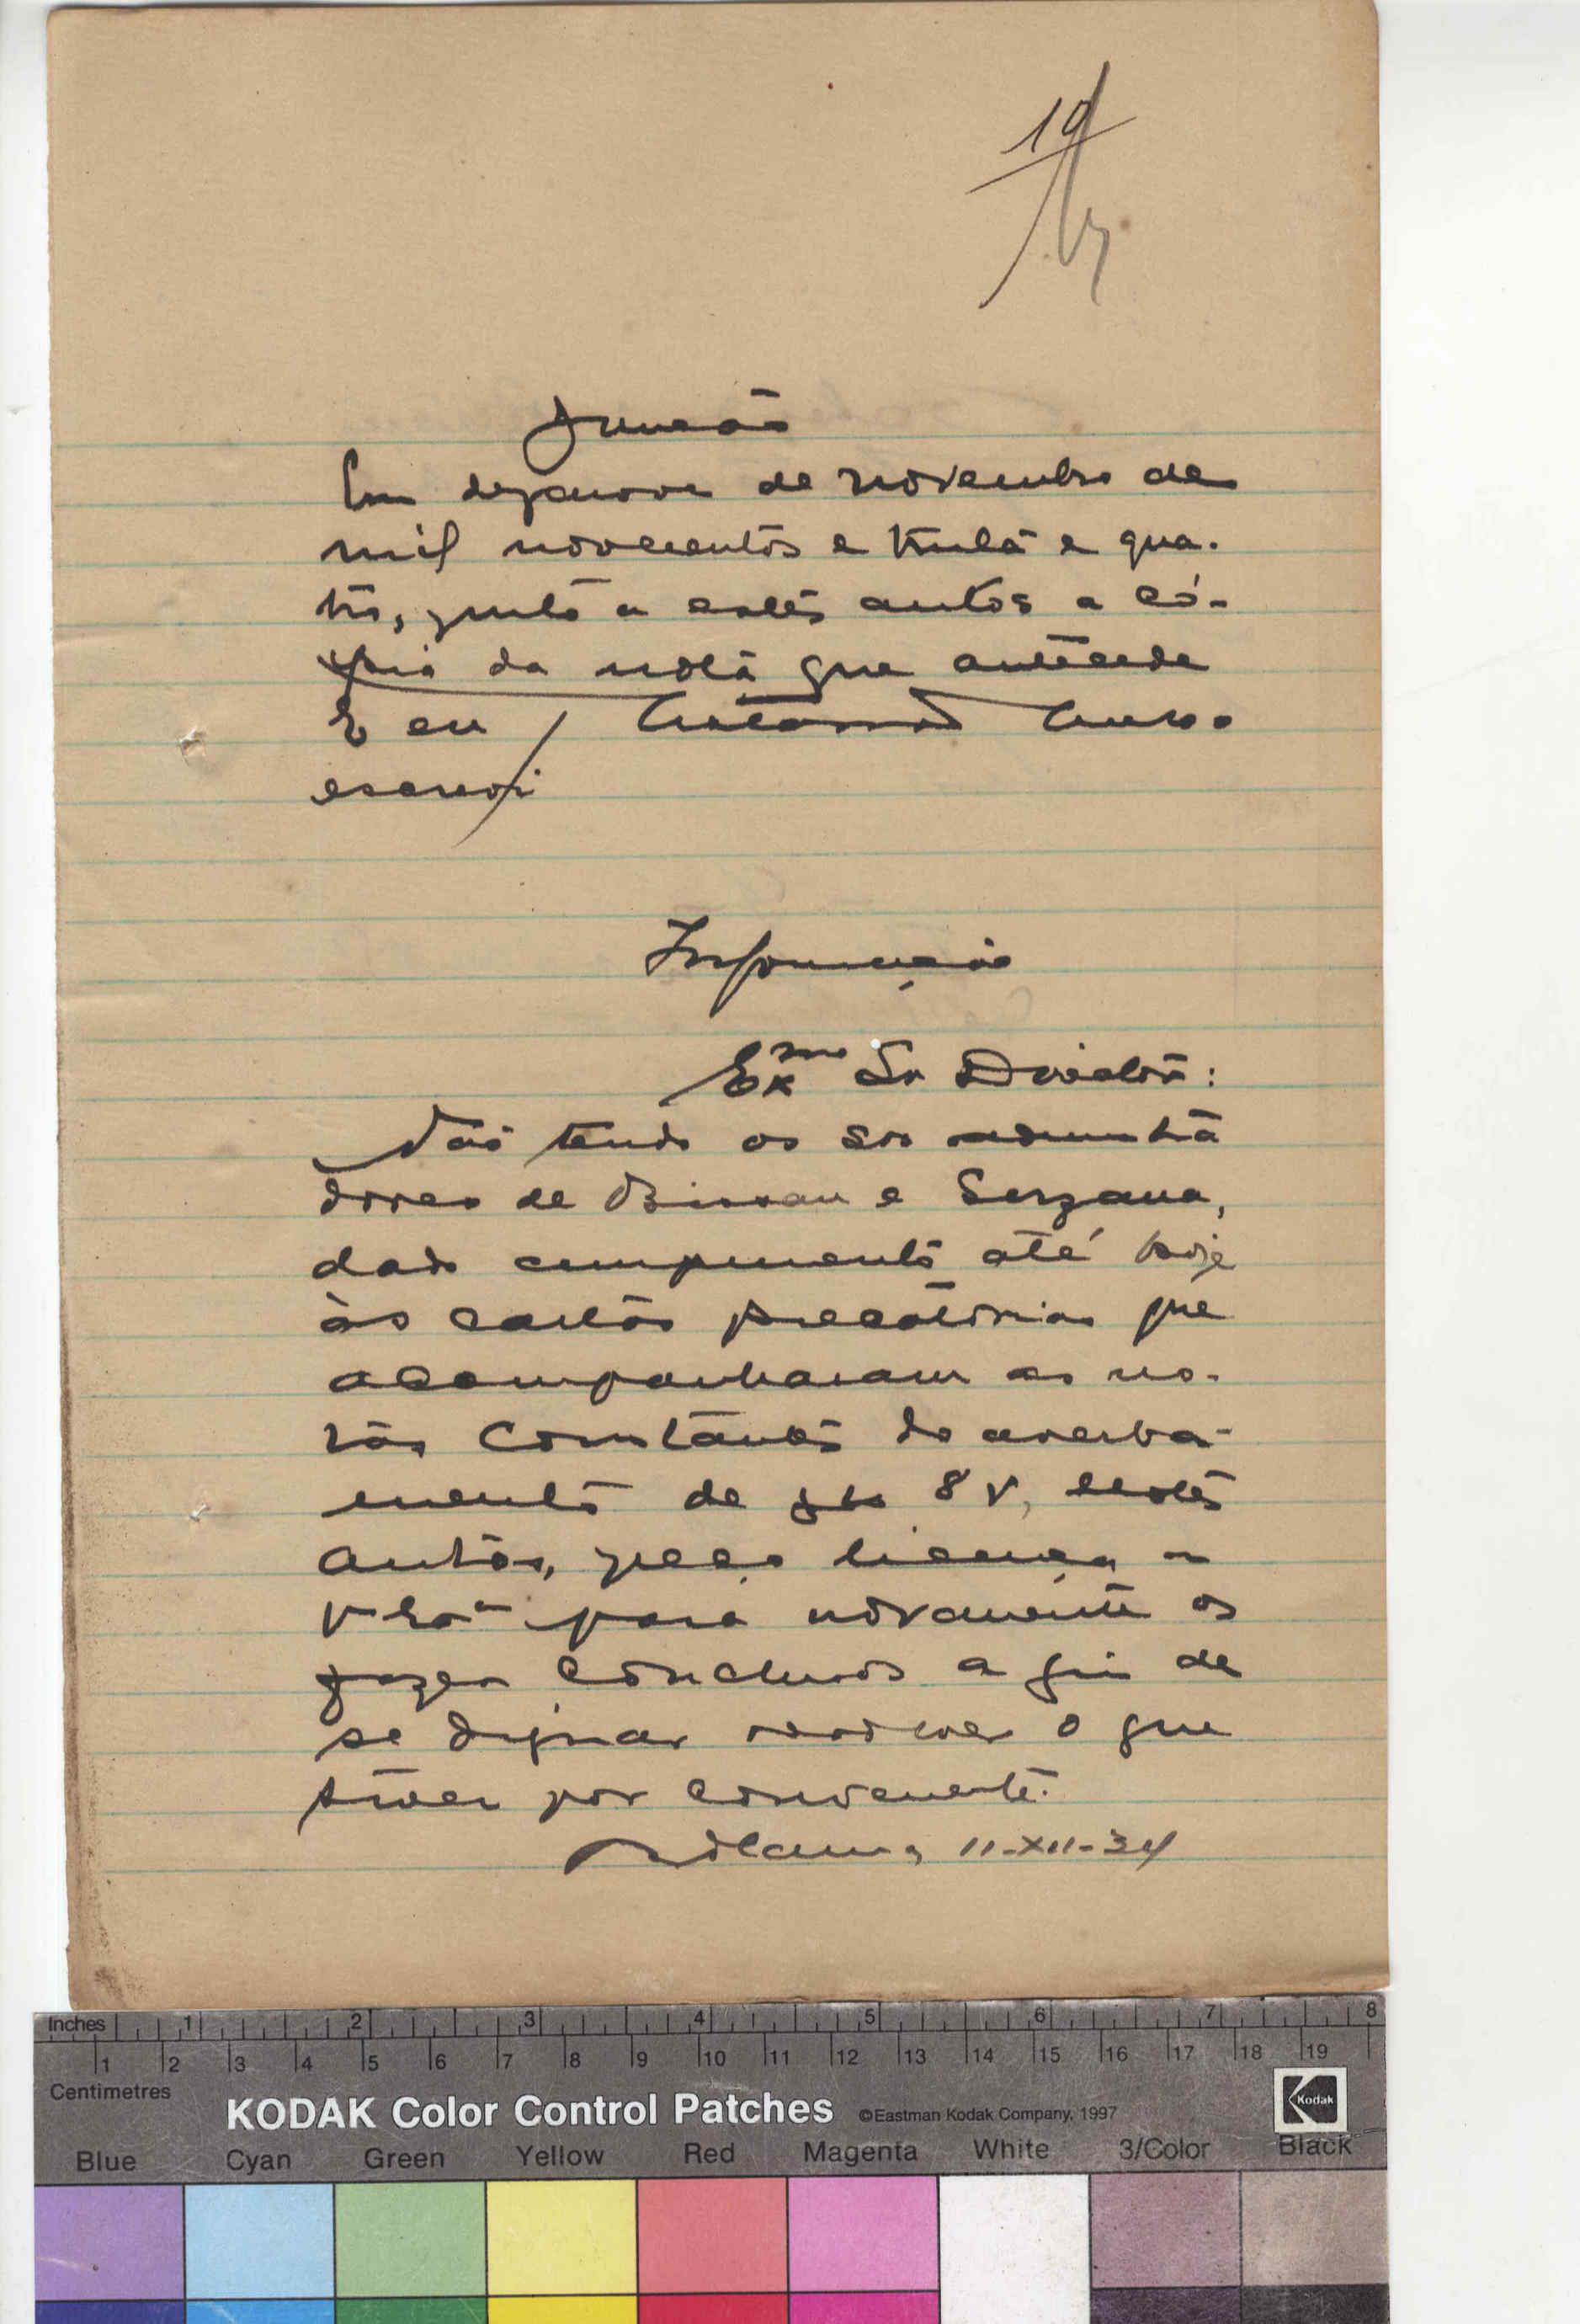 19
Junção
Em dezanove de novembro de
mil novecentos e trinta e qua-
tro, junto a estes autos a có-
pia da nota que antecede
E eu
escrevi
Informação
Exmo Sr Director:
Não tendo os Srs administra
dores de Bissau e Farim,
dado cumprimento até hoje
às cartas precatórias que
acompanharam as no-
tas constantes do averba-
mento de fls 8 v, destes
autos, peço licença a
V Exa para novamente os
fazer conclusos a fim de
se dignar resolver o que
tiver por conveniente.
Bolama, 11-XII-34
Inches 1 2 3 4 5 6 7 8
1 2 3 4 5 6 7 8 9 10 11 12 13 14 15 16 17 18 19
Centimetres
KODAK Color Control Patches ©Eastman Kodak Company, 1997 Kodak
Blue Cyan Green Yellow Red Magenta White 3/Color Black